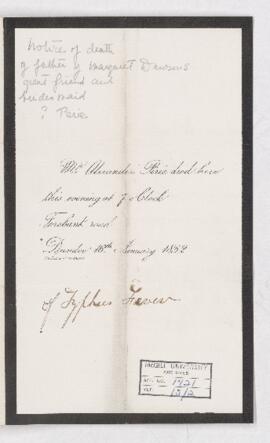 Notice of death
of father of Margaret Dawson's
great friend and
bridesmaid
? Peris
Mr Alexander Peris died here
this evening at 7 o'Clock
Forebank road
Dundee 16th January 1852
of Typhus Fever
McGILL UNIVERSITY
ARCHIVES
ACC. NO. 1421
REF.